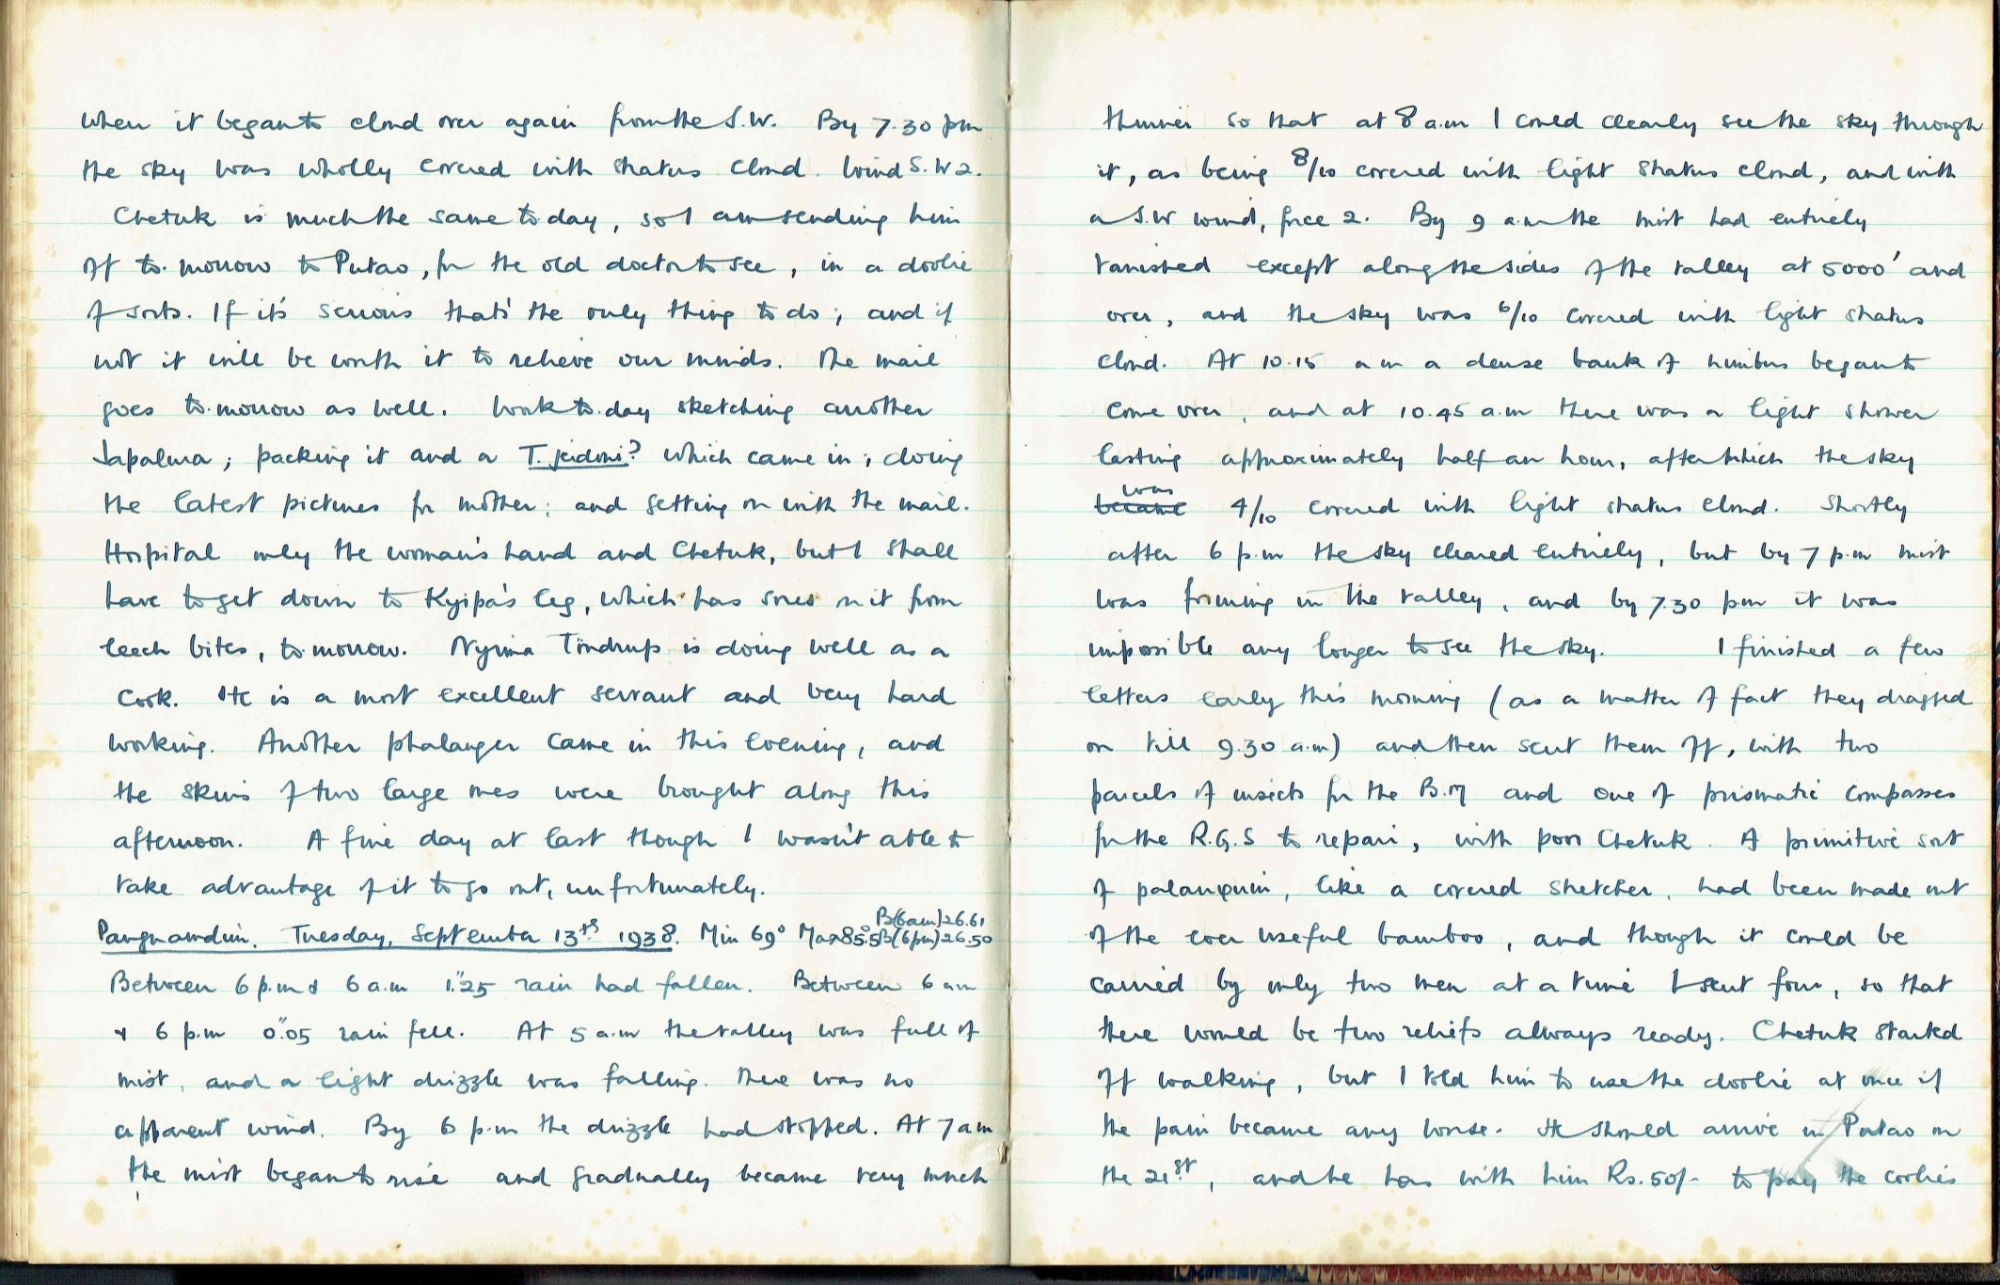 when it began to cloud over again from the S.W. By 7.30 pm
the sky was wholly covered with stratus cloud. Wind S.W 2.
Chetuk is much the same to-day, so I am sending him
off to-morrow to Putao, for the old doctor to see, in a doolie
of sorts. If it's serious that's the only thing to do; and if
not it will be worth it to relieve our minds. The mail
goes to-morrow as well. Work to-day sketching another
Japalura; packing it and a T. which came in; doing
the latest pictures for mother; and getting on with the mail.
Hospital only the woman's hand and Chetuk, but I shall
have to get down to Kyipa's leg, which has sores on it from
leech bites, to-morrow. Nyima Töndrup is doing well as a
cook. He is a most excellent servant and very hard
working. Another phalanger came in this evening, and
the skins of two large ones were brought along this
afternoon. A fine day at last though I wasn't able to
take advantage of it to go out, unfortunately.
Pangnamdim. Tuesday, September 13th 1938. Min 69° Max 85.5° B(6am) 26.61 B(6pm) 26.50
Between 6 p.m & 6 a.m 1".25 rain had fallen. Between 6 am
& 6 p.m 0".05 rain fell. At 5 a.m the valley was full of
mist, and a light drizzle was falling. There was no
apparent wind. By 6 p.m the drizzle had stopped. At 7 am
the mist began to rise and gradually became very much
thinner so that at 8 a.m I could clearly see the sky through
it, as being 8/10 covered with light stratus cloud, and with
a S.W wind, force 2. By 9 a.m the mist had entirely
vanished except along the sides of the valley at 5000' and
over, and the sky was 6/10 covered with light stratus
cloud. At 10.15 a m a dense bank of nimbus began to
come over, and at 10.45 a.m there was a light shower
lasting approximately half an hour, after which the sky
became was 4/10 covered with light stratus cloud. Shortly
after 6 p.m the sky cleared entirely, but by 7 p.m mist
was forming in the valley, and by 7.30 pm it was
impossible any longer to see the sky. I finished a few
letters early this morning (as a matter of fact they dragged
on till 9.30 a.m) and then sent them off, with two
parcels of insects for the B.M and one of prismatic compasses
for the R.G.S to repair, with poor Chetuk. A primitive sort
of palanquin, like a covered stretcher, had been made out
of the ever useful bamboo, and though it could be
carried by only two men at a time I sent four, so that
there would be two reliefs always ready. Chetuk started
off walking, but I told him to use the doolie at once if
the pain became any worse. He should arrive in Putao on
the 21st, and he has with him Rs. 50/- to pay the coolies